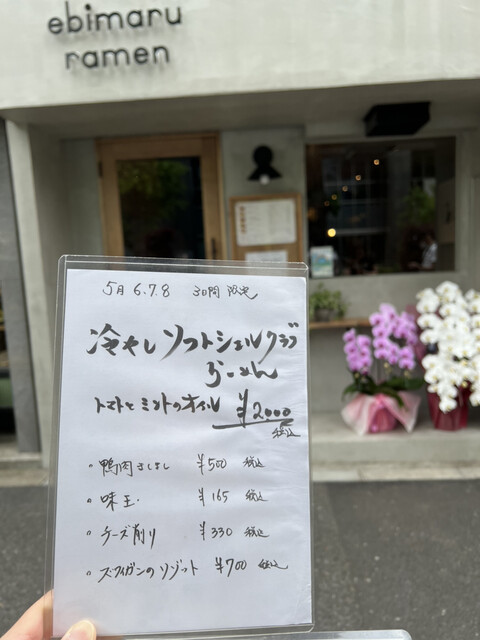 ebimaru
ramen
5月 6.7.8 3日間 限定
冷やし ソフトシェルクラブ
らーめん
トマトとミントのオイル ¥2000
税込
・鴨肉ましまし ¥500 税込
・味玉 ¥165 税込
・チーズ削り ¥330 税込
・ズワイガニのリゾット ¥700 税込